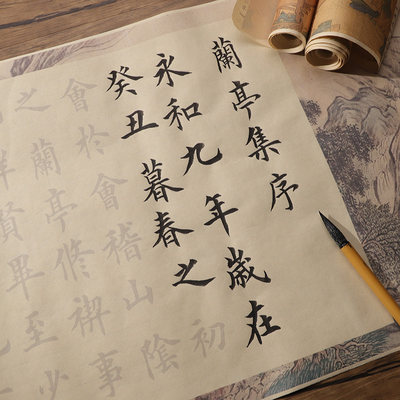 蘭亭集序
永和九年歲在
癸丑暮春之初
會於會稽山陰
之蘭亭修禊事
賢畢至少